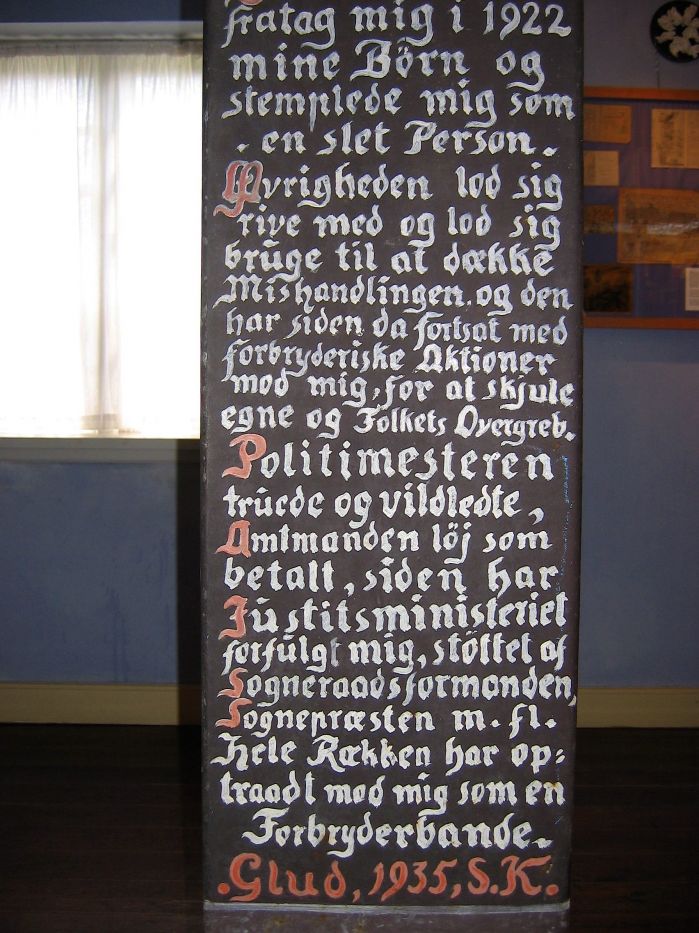 fratag mig i 1922
mine Börn og
stemplede mig som
. en slet Person.
Øvrigheden lod sig
rive med og lod sig
bruge til at dække
Mishandlingen, og den
har siden da fortsat med
forbryderiske Aktioner
mod mig, for at skjule
egne og Folkets Overgreb.
Politimesteren
truede og vildledte,
Amtmanden löj som
betalt, siden har
Justitsministeriet
forfulgt mig, stöttet af
Sogneraadsformanden,
Sognepræsten m. fl.
Hele Rækken har op=
traadt mod mig som en
Forbryderbande.
.Glud, 1935, S.K.